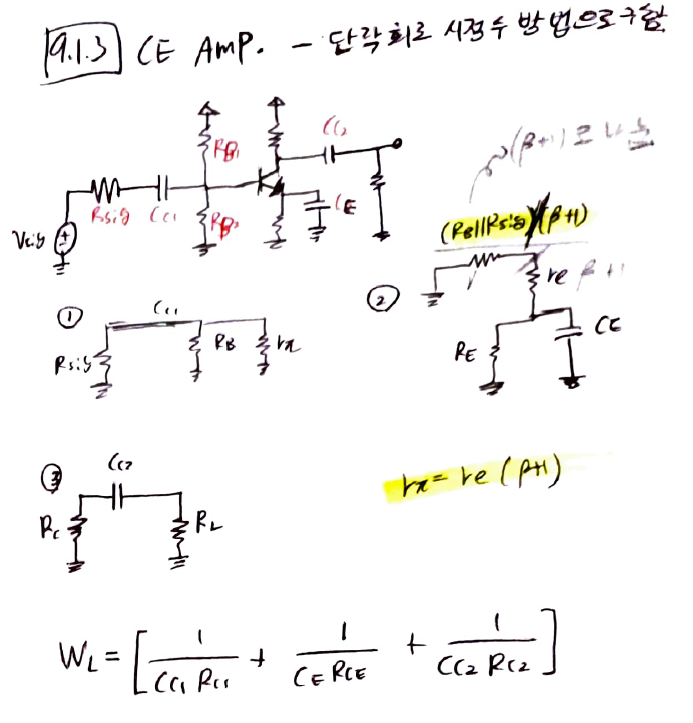 9.1.3 CE AMP. - 단락회로 시정수 방법으로 구함
RB1
CC2
Rsig CC1 RB2 CE
Vsig
(β+1)로 나눔
(RB||Rsig)/(β+1)
① CC1
Rsig RB rπ
② re β+1
RE CE
③ CC2
RC RL
rπ = re (β+1)
WL = [ 1/(CC1 RC1) + 1/(CE RCE) + 1/(CC2 RC2) ]